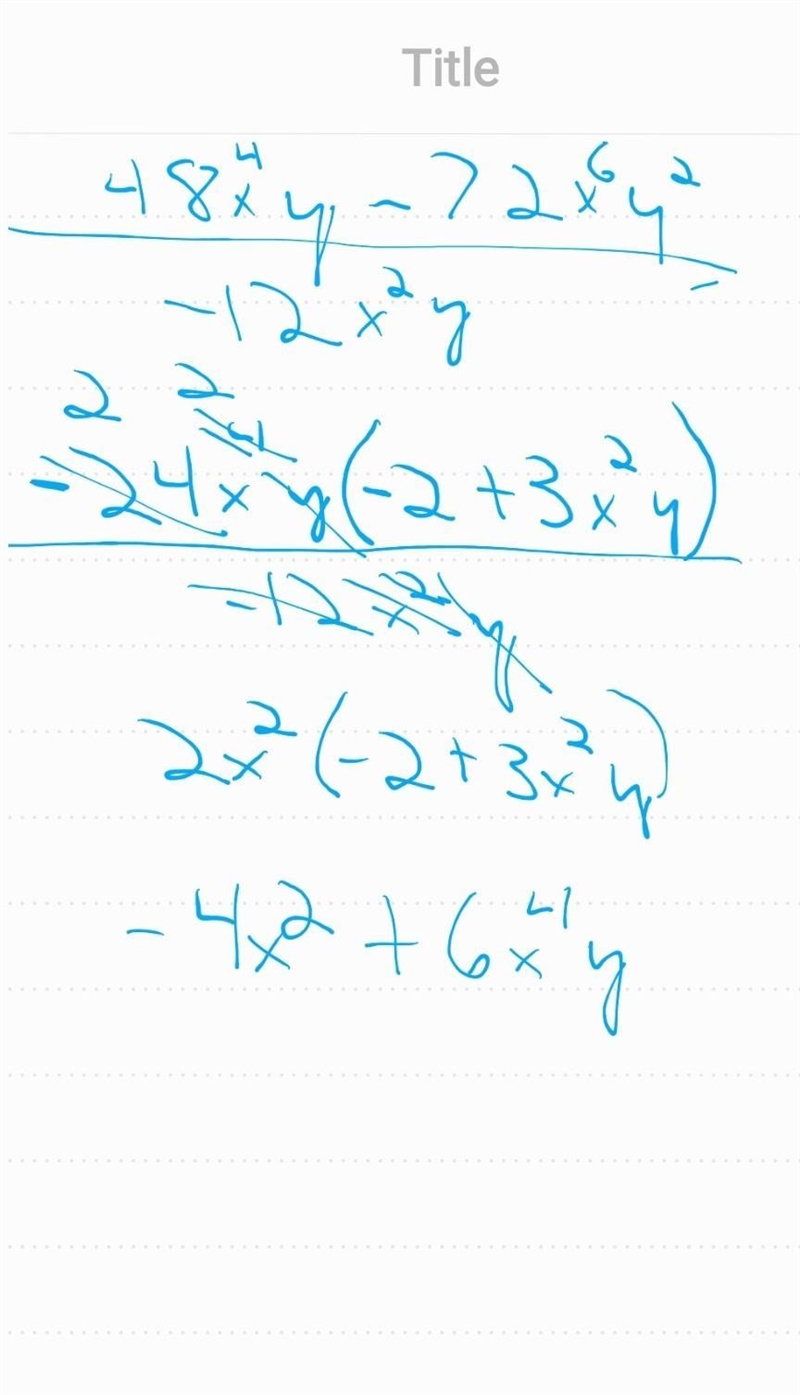 Title
48x⁴y - 72x⁶y²
=
-12x²y
2 2
-24x⁴y(-2 + 3x²y)
-12x²y
2x²(-2 + 3x²y)
-4x² + 6x⁴y